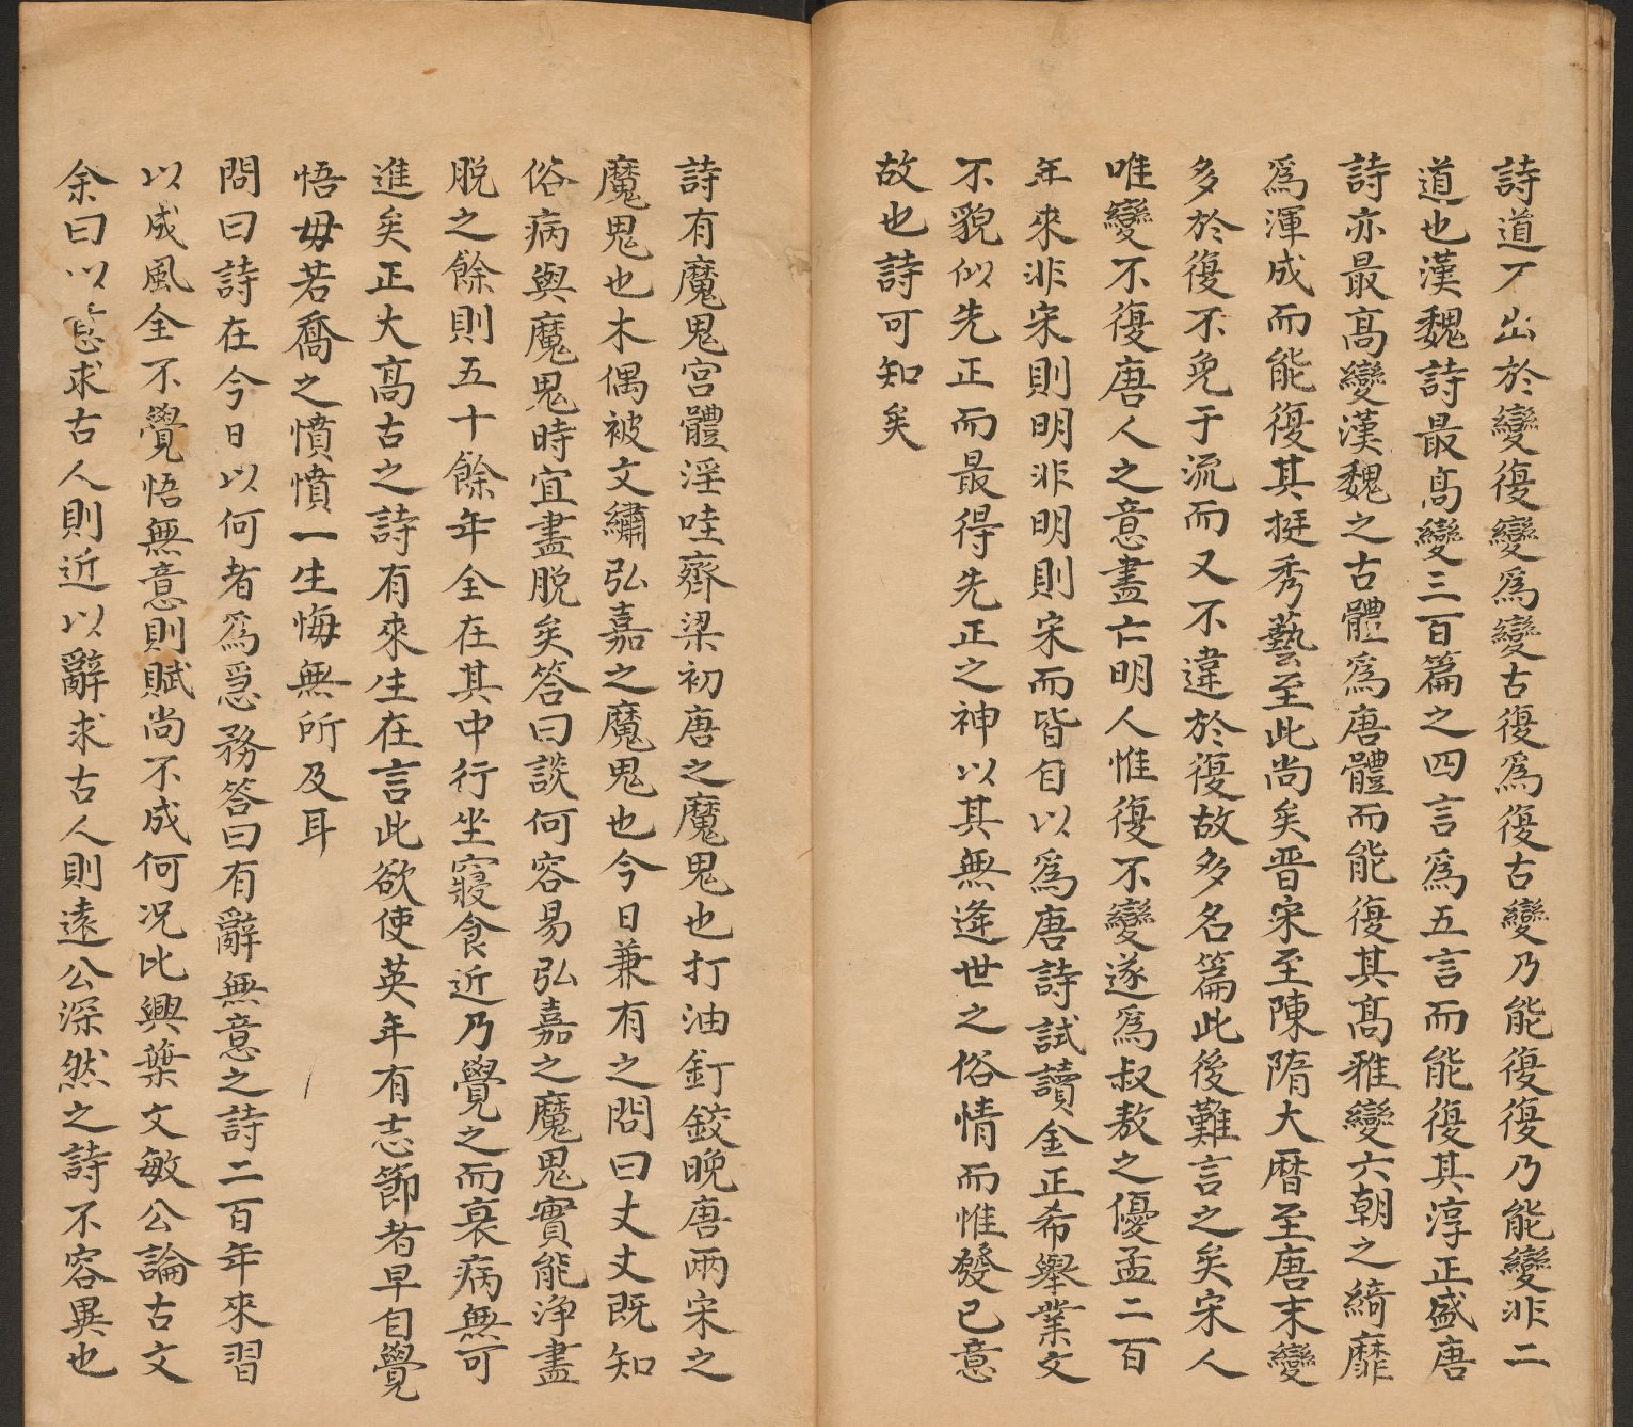 詩道不出於變復變爲變古復爲復古變乃能復復乃能變非二
道也漢魏詩最高變三百篇之四言爲五言而能復其淳正盛唐
詩亦最高變漢魏之古體爲唐體而能復其高雅變六朝之綺靡
爲渾成而能復其挺秀藝至此尚矣晋宋至陳隋大曆至唐末變
多於復不免于流而又不違於復故多名篇此後難言之矣宋人
唯變不復唐人之意盡亡明人惟復不變遂爲叔敖之優孟二百
年來非宋則明非明則宋而皆自以爲唐詩試讀金正希舉業文
不貌似先正而最得先正之神以其無逢世之俗情而惟發已意
故也詩可知矣
詩有魔鬼宮體淫哇齊梁初唐之魔鬼也打油釘鉸晚唐兩宋之
魔鬼也木偶被文繡弘嘉之魔鬼也今日兼有之問曰丈丈既知
俗病與魔鬼時宜盡脫矣答曰談何容易弘嘉之魔鬼實能淨盡
脫之餘則五十餘年全在其中行坐寢食近乃覺之而衰病無可
進矣正大高古之詩有來生在言此欲使英年有志節者早自覺
悟毋若喬之憒憒一生悔無所及耳
問曰詩在今日以何者爲急務答曰有辭無意之詩二百年來習
以成風全不覺悟無意則賦尚不成何况比興葉文敏公論古文
余曰以意求古人則近以辭求古人則遠公深然之詩不容異也